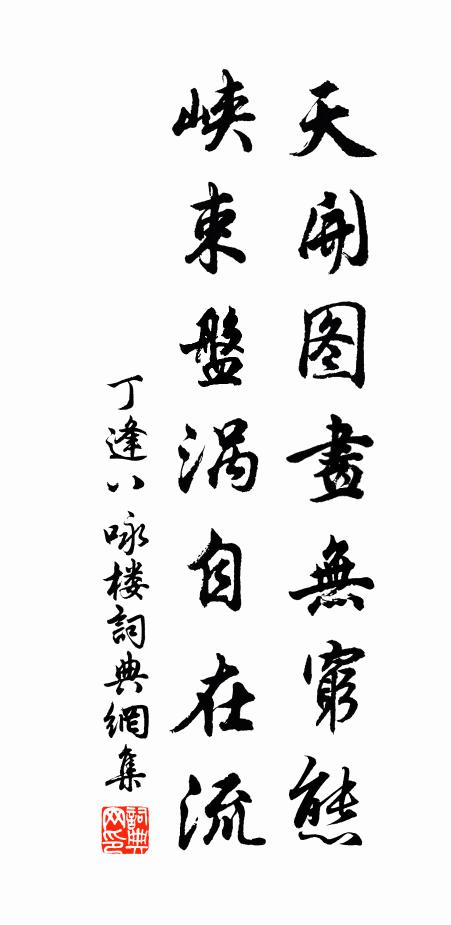 天開图畫無窮態
峽束盤涡自在流
丁逢八咏楼詞典網集
詞典网印